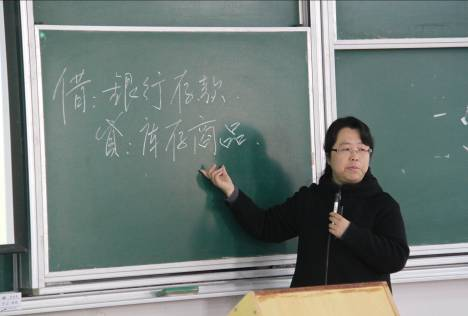 借：银行存款．
贷：库存商品．